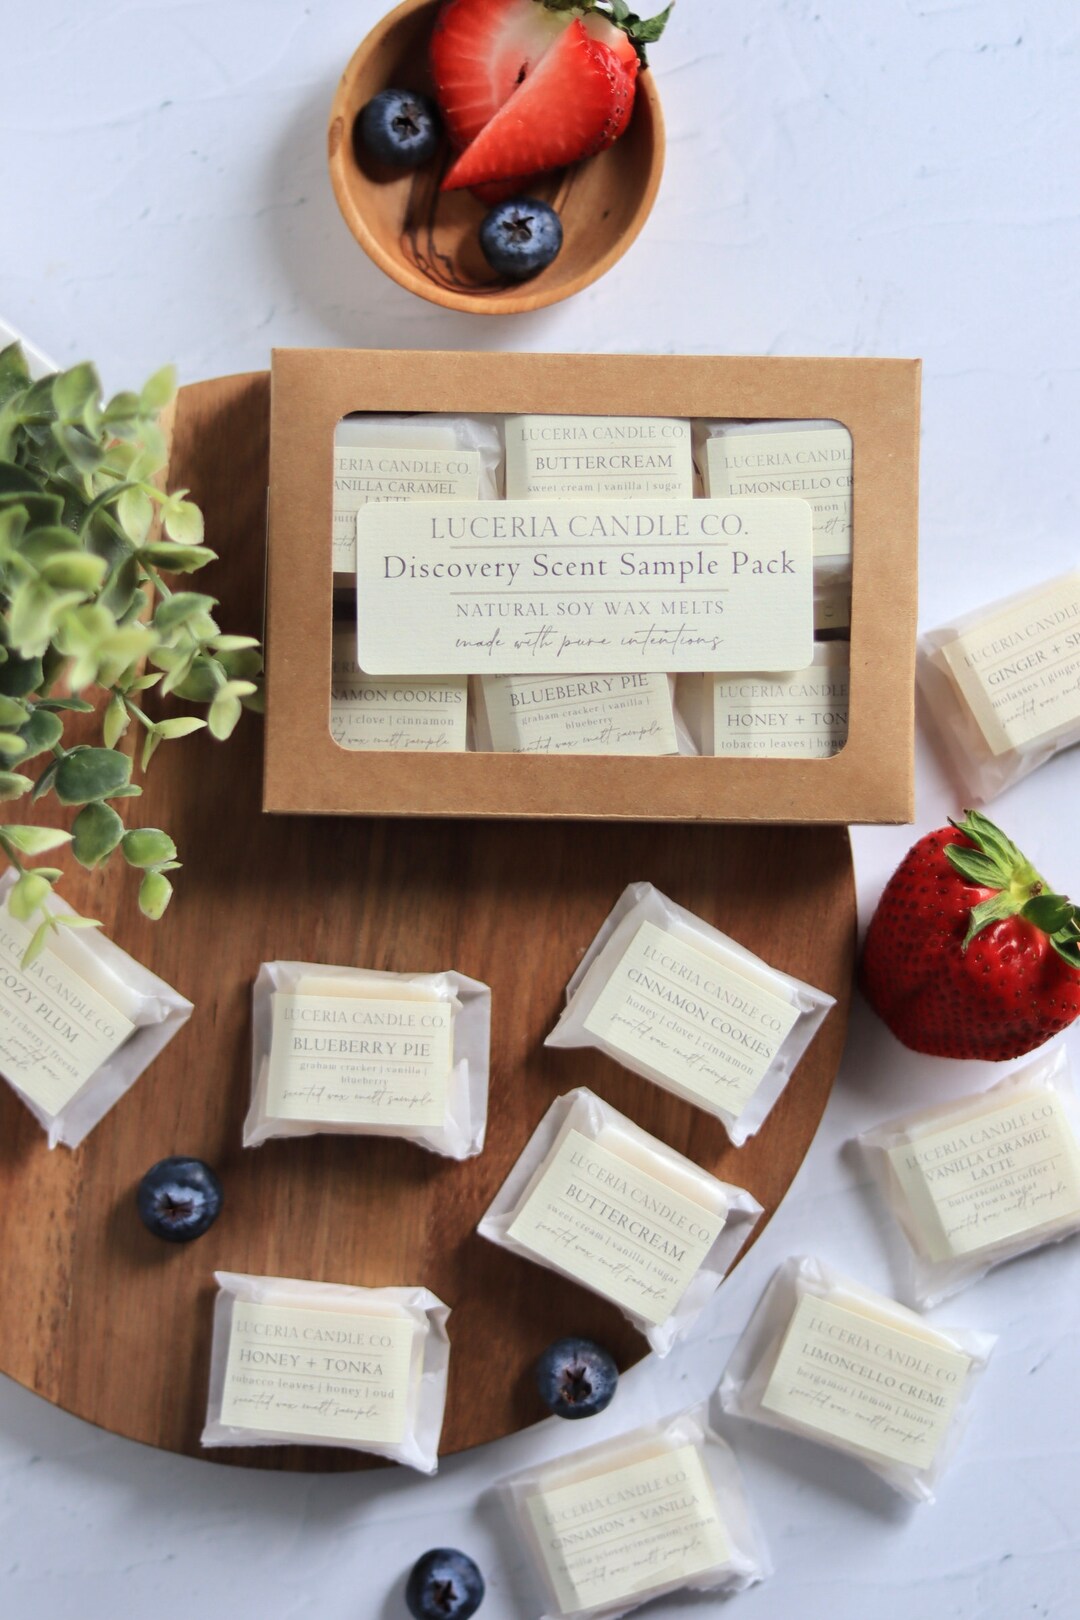 LUCERIA CANDLE CO.
ANILLA CARAMEL
LATTE
LUCERIA CANDLE CO.
BUTTERCREAM
sweet cream | vanilla | sugar
LUCERIA CANDL
LIMONCELLO CR
LUCERIA CANDLE CO.
Discovery Scent Sample Pack
NATURAL SOY WAX MELTS
made with pure intentions
NAMON COOKIES
ey | clove | cinnamon
wax melt sample
BLUEBERRY PIE
graham cracker | vanilla |
blueberry
scented wax melt sample
LUCERIA CANDLE
HONEY + TON
tobacco leaves | honey
LUCERIA CANDLE
GINGER + SP
molasses | ginger
scented wax
LUCERIA CANDLE CO.
COZY PLUM
| cherry | freesia
LUCERIA CANDLE CO.
BLUEBERRY PIE
graham cracker | vanilla |
blueberry
scented wax melt sample
LUCERIA CANDLE CO.
CINNAMON COOKIES
honey | clove | cinnamon
scented wax melt sample
LUCERIA CANDLE CO.
BUTTERCREAM
sweet cream | vanilla | sugar
scented wax melt sample
LUCERIA CANDLE CO.
VANILLA CARAMEL
LATTE
butterscotch | coffee |
brown sugar
scented wax melt sample
LUCERIA CANDLE CO.
HONEY + TONKA
tobacco leaves | honey | oud
scented wax melt sample
LUCERIA CANDLE CO.
LIMONCELLO CREME
bergamot | lemon | honey
scented wax melt sample
LUCERIA CANDLE CO.
CINNAMON + VANILLA
vanilla | clove | cinnamon | cream
scented wax melt sample